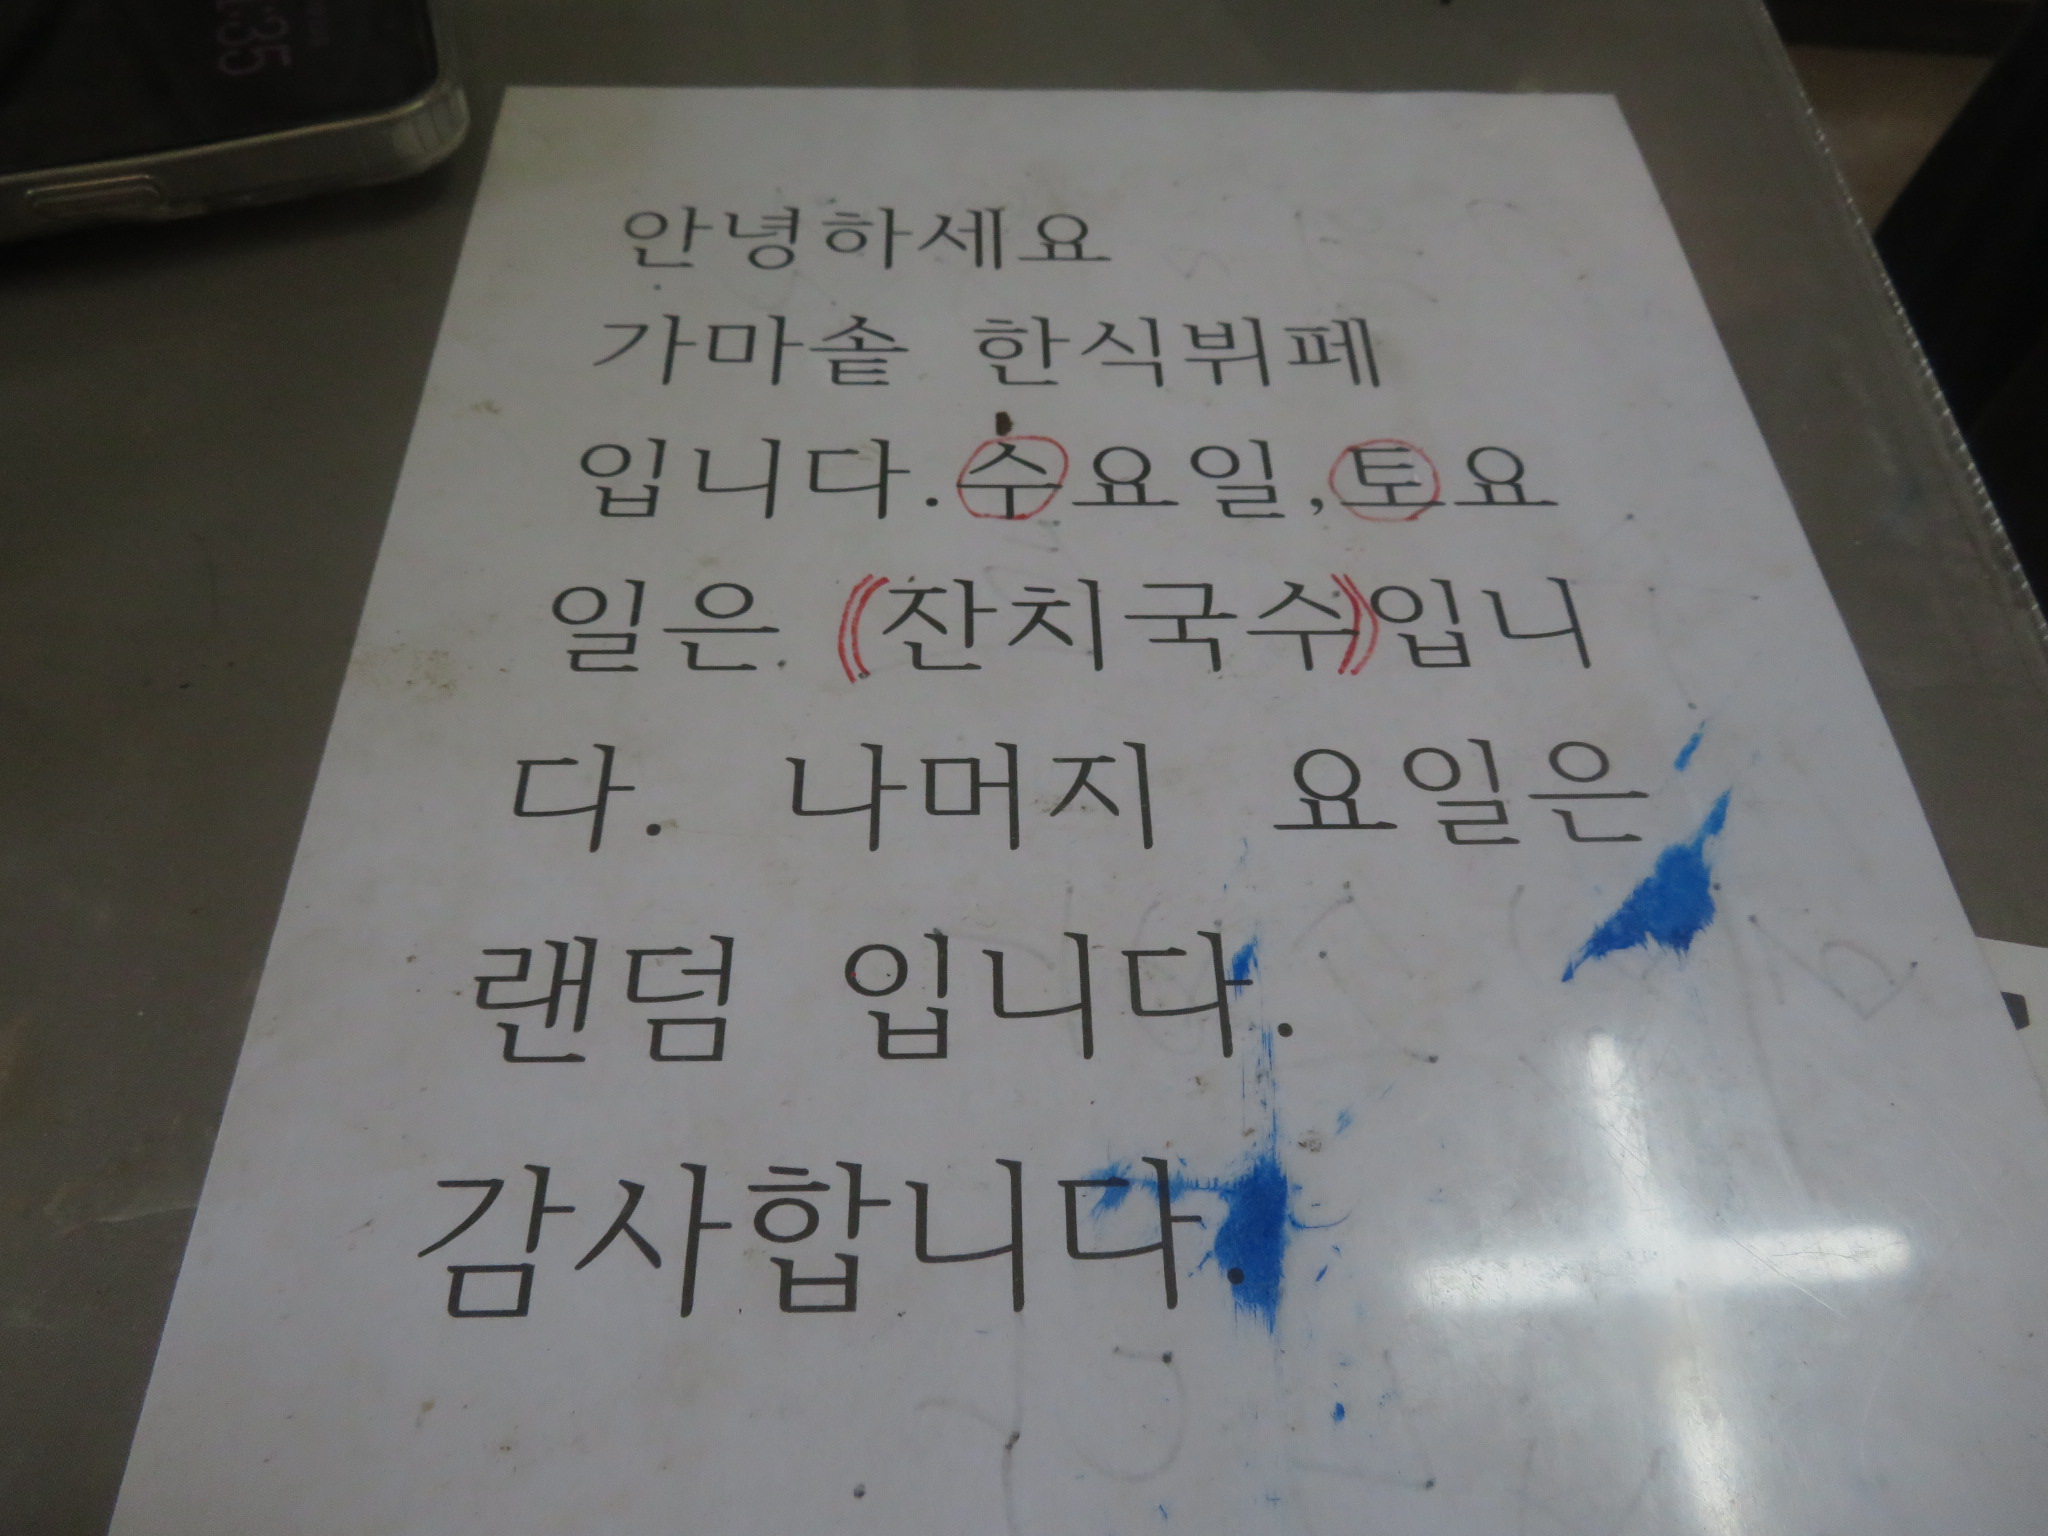 안녕하세요
가마솥 한식뷔페
입니다.수요일,토요
일은 ((잔치국수))입니
다. 나머지 요일은
랜덤 입니다.
감사합니다.